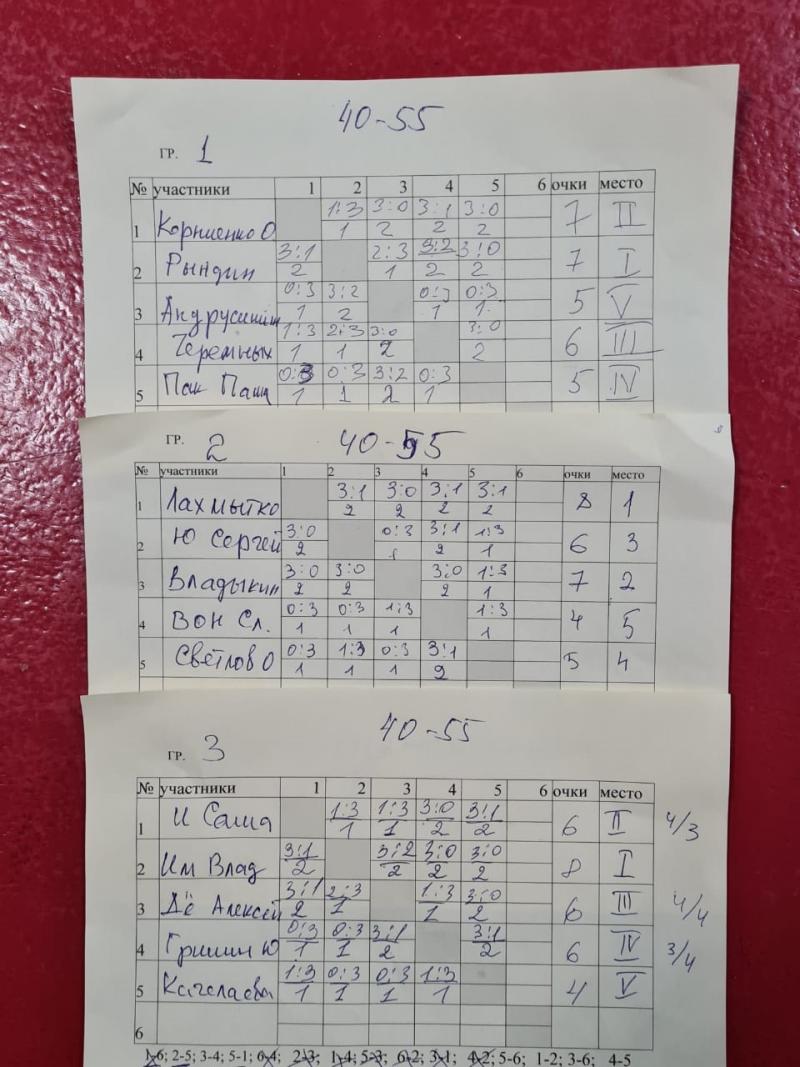 40-55
ГР. 1
№ участники 1 2 3 4 5 6 очки место
1 Корниенко О 1:3 3:0 3:1 3:0 7 II
1 2 2 2
2 Рындин 3:1 2:3 3:2 3:0 7 I
2 1 2 2
3 0:3 3:2 0:3 0:3 5 V
1 2 1 1
4 Черемных 1:3 2:3 3:0 3:0 6 III
1 1 2 2
5 Пак Паша 0:3 0:3 3:2 0:3 5 IV
1 1 2 1
ГР. 2 40-55
№ участники 1 2 3 4 5 6 очки место
1 Лахмытко 3:1 3:0 3:1 3:1 8 1
2 2 2 2
2 Ю Сергей 3:0 0:3 3:1 1:3 6 3
2 1 2 1
3 Владыкин 3:0 3:0 3:0 1:3 7 2
2 2 2 1
4 Вон Сл. 0:3 0:3 1:3 1:3 4 5
1 1 1 1
5 Светлов О 0:3 1:3 0:3 3:1 5 4
1 1 1 2
40-55
ГР. 3
№ участники 1 2 3 4 5 6 очки место
1 И Саша 1:3 1:3 3:0 3:1 6 II 4/3
1 1 2 2
2 Им Влад 3:1 3:2 3:0 3:0 8 I
2 2 2 2
3 Дё Алексей 3:1 2:3 1:3 3:0 6 III 4/4
2 1 1 2
4 Гришин Ю 0:3 0:3 3:1 3:1 6 IV 3/4
1 1 2 2
5 1:3 0:3 0:3 1:3 4 V
1 1 1 1
6
1-6; 2-5; 3-4; 5-1; 6-4; 2-3; 1-4; 5-3; 6-2; 3-1; 4-2; 5-6; 1-2; 3-6; 4-5